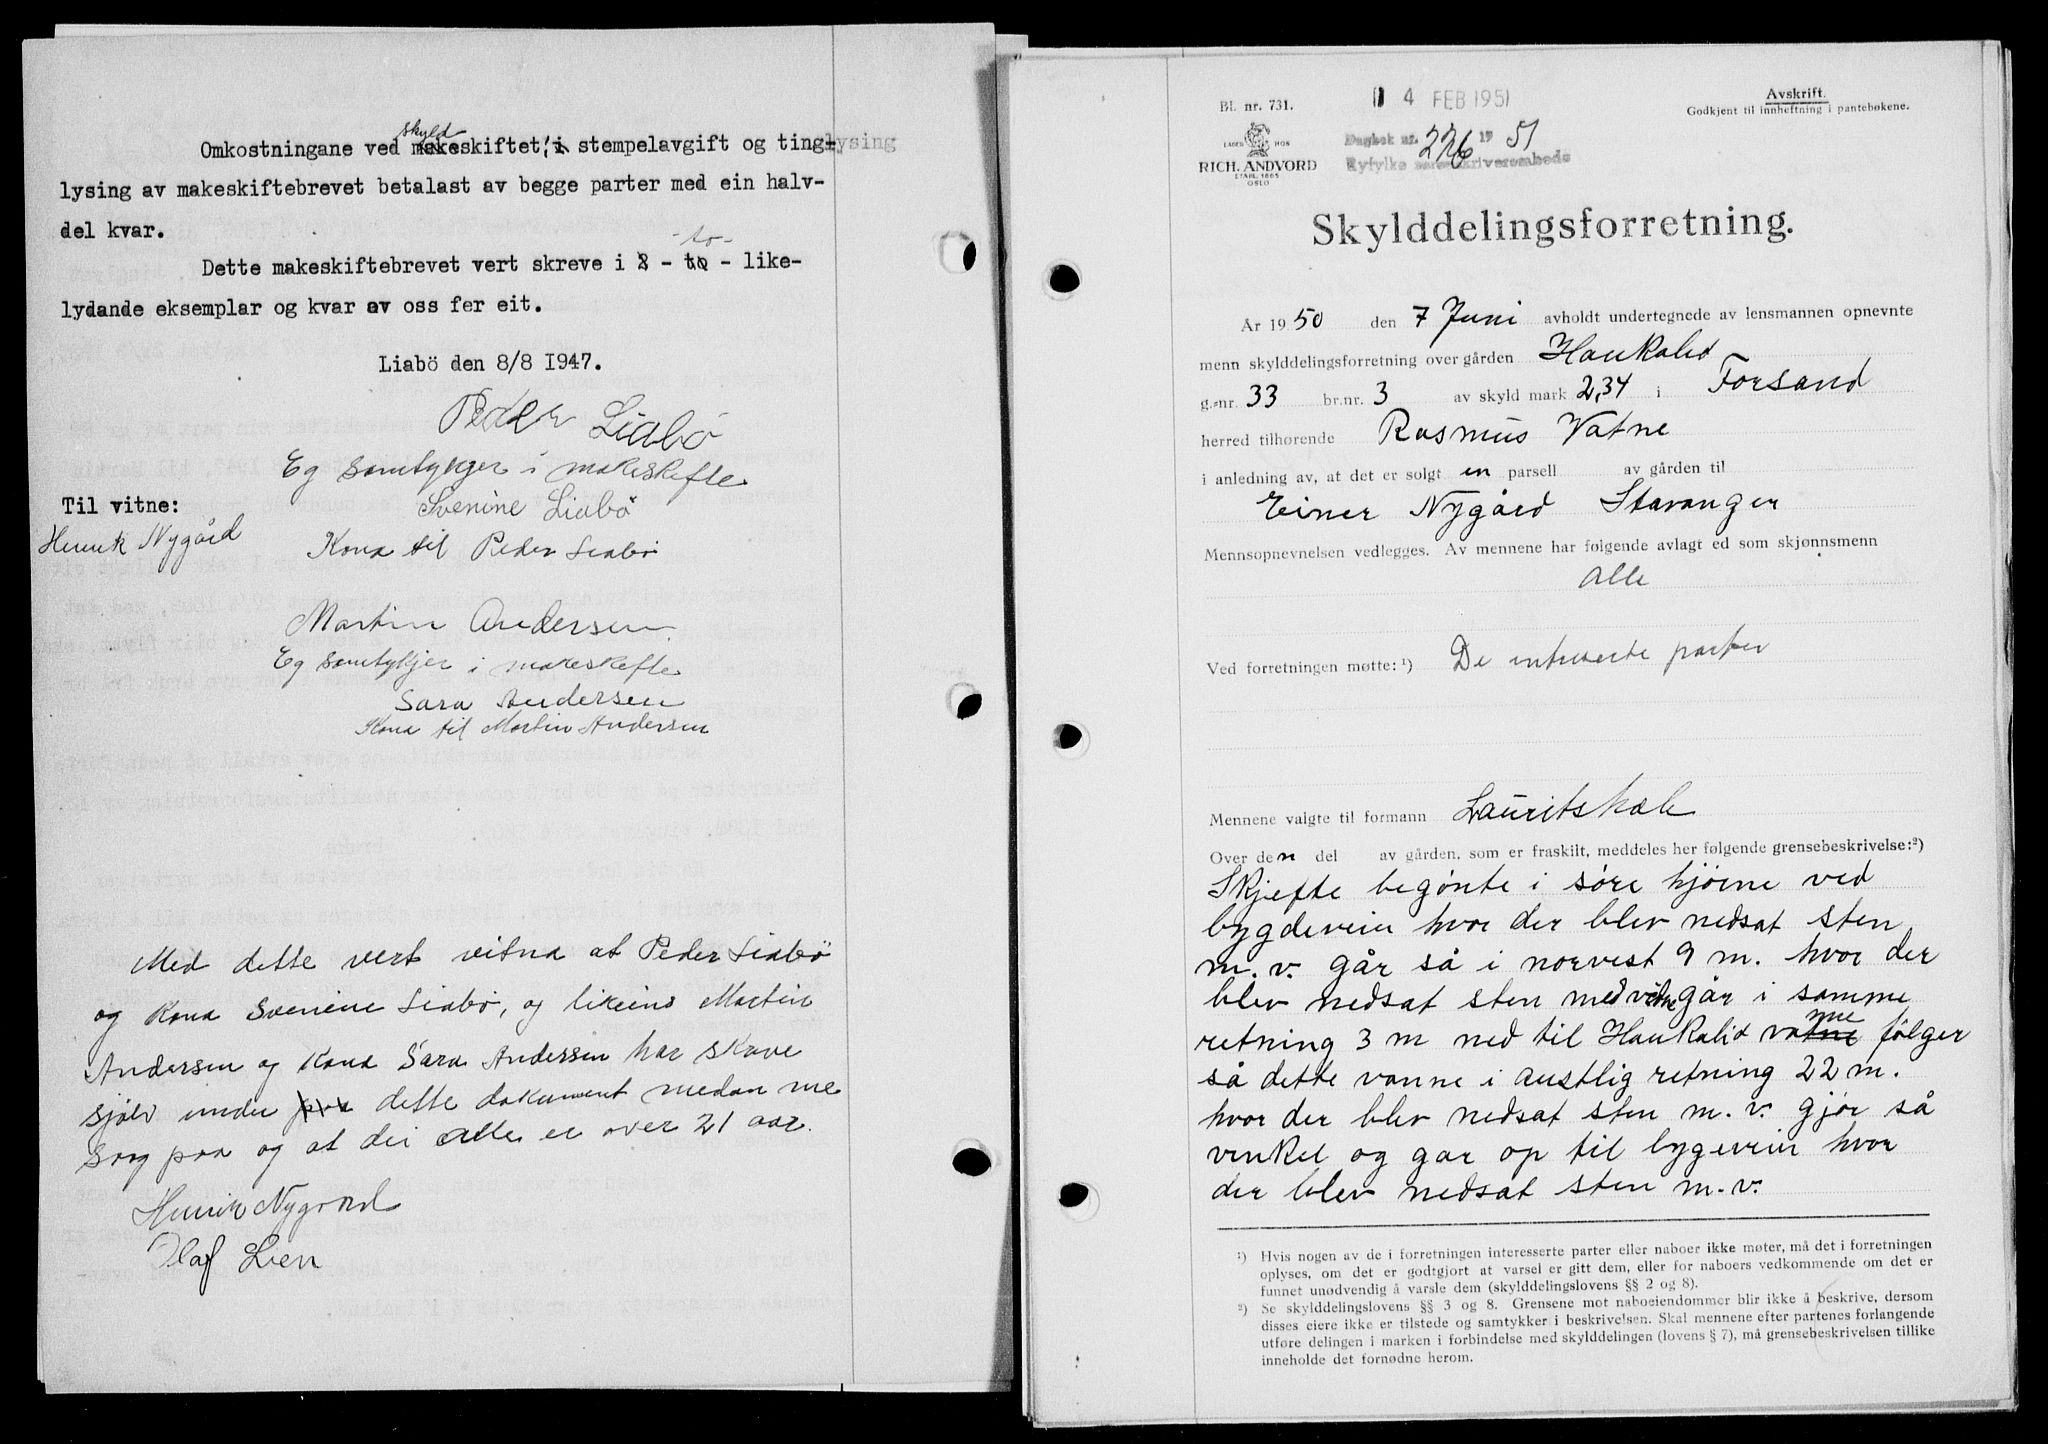 Omkostningane ved skyldskiftet, stempelavgift og ting-
lysing av makeskiftebrevet betalast av begge parter med ein halv-
del kvar.
- to -
Dette makeskiftebrevet vert skreve i 2 - to - like-
lydande eksemplar og kvar av oss fer eit.
Liabö den 8/8 1947.
Peder Liabö
Eg samtykjer i makeskefte
Svenine Liabö
Til vitne:
Henrik Nygård
Kona til Peder Liabö
Martin Andersen
Eg samtykjer i makeskefte
Sara Andersen
Kona til Martin Andersen
Med dette vert vitna at Peder Liabö
og Kona Svenine Liabö, og likeins Martin
Andersen og Kona Sara Andersen har skreve
sjølv under paa dette dokument medan me
saag paa og at dei alle er over 21 aar.
Henrik Nygård
Olaf Lien
Bl. nr. 731.
LAGER HOS
RICH. ANDVORD
ETABL. 1865
OSLO
14 FEB 1951
Dagbok nr. 226 19 51
Ryfylke sorenskriverembede
Avskrift.
Godkjent til innheftning i pantebøkene.
Skylddelingsforretning.
År 1950 den 7 Juni avholdt undertegnede av lensmannen opnevnte
menn skylddelingsforretning over gården Haukalid
g.-nr. 33 br.nr. 3 av skyld mark 2,34 i Forsand
herred tilhørende Rasmus Vatne
i anledning av, at det er solgt en parsell av gården til
Einer Nygård Stavanger
Mennsopnevnelsen vedlegges. Av mennene har følgende avlagt ed som skjønnsmenn
Alle
Ved forretningen møtte: ¹) De intreserte parter
Mennene valgte til formann Laurits Hæle
Over den del av gården, som er fraskilt, meddeles her følgende grensebeskrivelse:²)
Skjefte begønte i søre hjørne ved
bygdeveien hvor der blev nedsat sten
m.v. går så i norvest 9 m. hvor der
blev nedsat sten med vidne går i samme
retning 3 m ned til Haukalid vatne følger
så dette vanne i austlig retning 22 m.
hvor der blev nedsat sten m.v. gjør så
vinkel og går op til bygeveien hvor
der blev nedsat sten m.v.
¹) Hvis nogen av de i forretningen interesserte parter eller naboer ikke møter, må det i forretningen
oplyses, om det er godtgjort at varsel er gitt dem, eller for naboers vedkommende om det er
funnet unødvendig å varsle dem (skylddelingslovens §§ 2 og 8).
²) Se skylddelingslovens §§ 3 og 8. Grensene mot naboeiendommer blir ikke å beskrive, dersom
disses eiere ikke er tilstede og samtykker i beskrivelsen. Skal mennene efter partenes forlangende
utføre delingen i marken i forbindelse med skylddelingen (lovens § 7), må grensebeskrivelsen tillike
inneholde det fornødne herom.